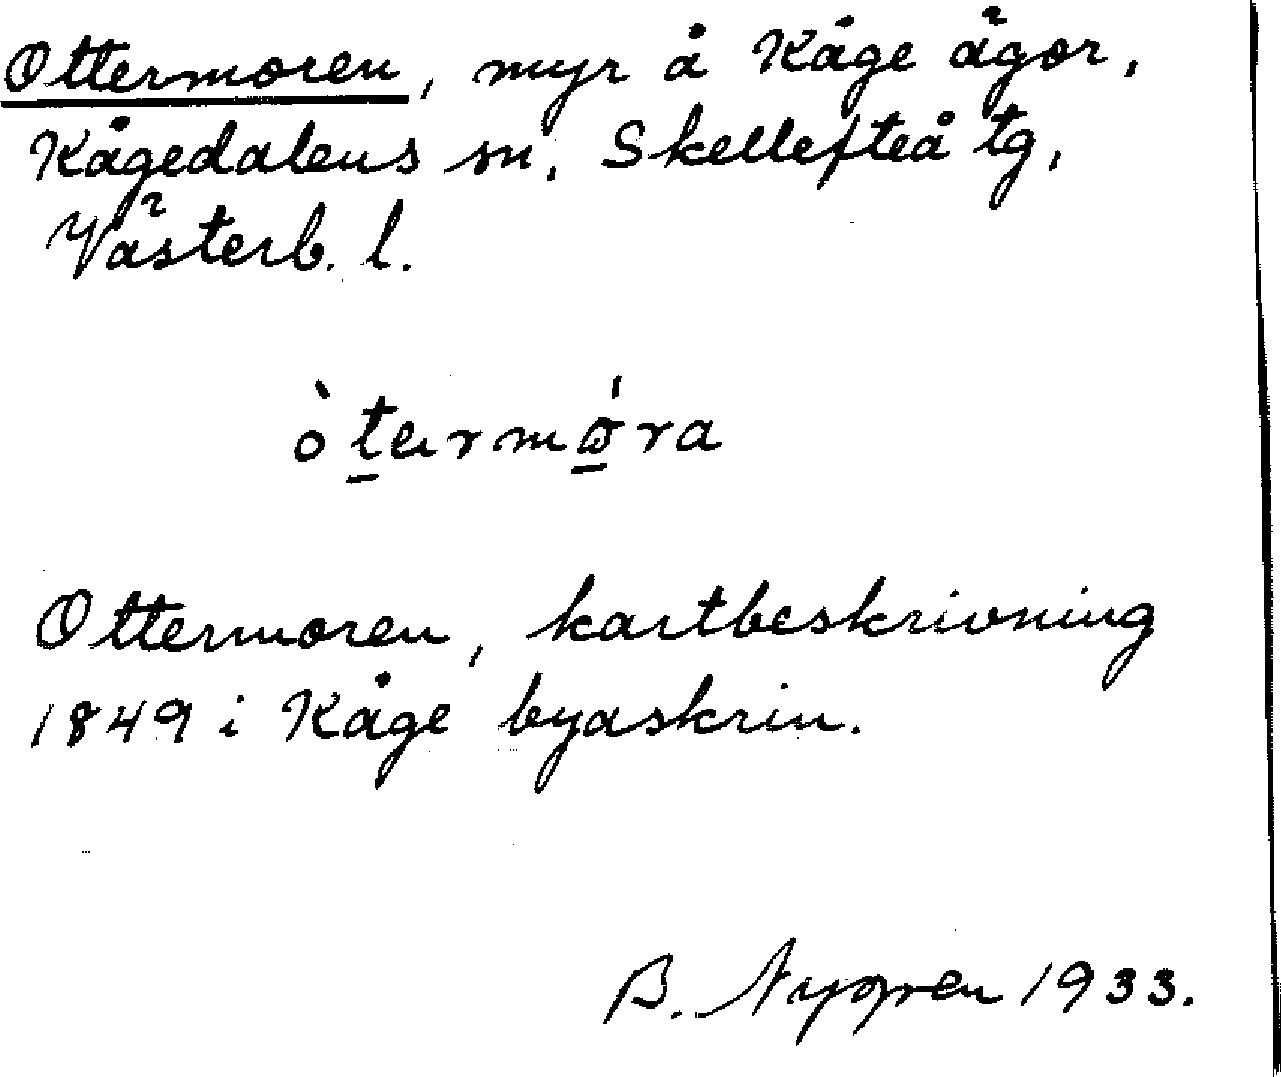 Ottermoren, myr å Kåge ägor,
Kågedalens sn, Skellefteå tg,
Västerb. l.
Ottermoren, kartbeskrivning
1849 i Kåge byaskrin.
B. Nygren 1933.